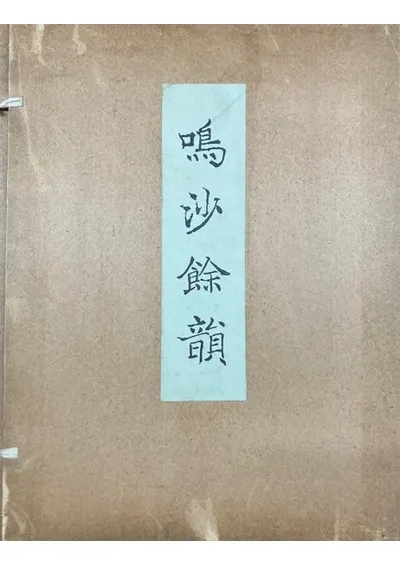 鳴沙餘韻